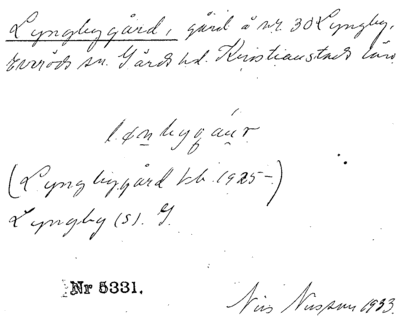 Lyngbygård, gård å nr. 30 Lyngby,
Everöds sn. Gärds hd. Kristianstads län
lønbygáur
(Lyngbygård kb. 1925-)
Lyngby (s). G
Nr 5331.
Nils Nilsson 1933.